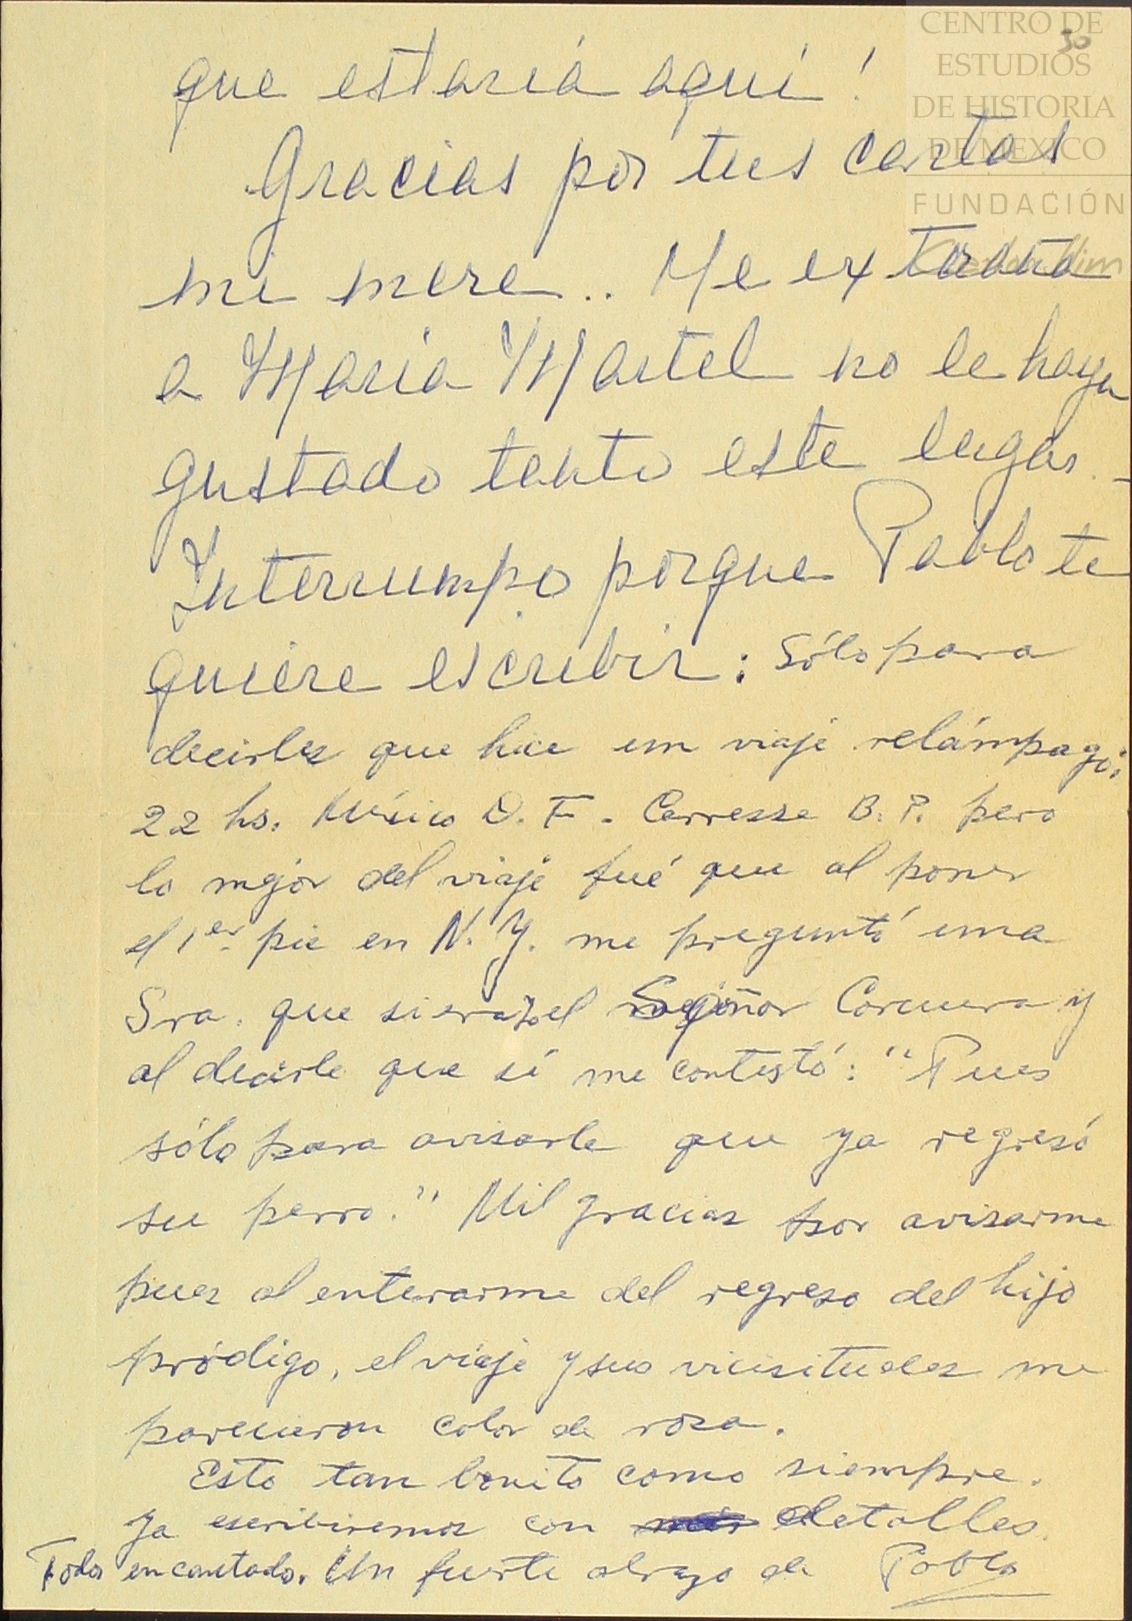 CENTRO DE
ESTUDIOS
DE HISTORIA
DE MEXICO
FUNDACIÓN
30
que estaría aquí!
Gracias por tus cartas
mi mere.. Me extraña
a María Martel no le haya
gustado tanto este lugar. -
Interrumpo porque Pablo te
quiere escribir: Sólo para
decirles que hice un viaje relámpago:
22 hs. México D.F. - Carresse B.P. pero
lo mejor del viaje fué que al poner
el 1er pie en N.Y. me preguntó una
Sra. que si era yo el Señor Corcuera y
al decirle que sí me contestó: "Pues
sólo para avisarle que ya regresó
su perro." Mil gracias por avisarme
pues al enterarme del regreso del hijo
pródigo, el viaje y sus vicisitudes me
parecieron color de rosa.
Esto tan bonito como siempre.
Ya escribiremos con detalles.
Todos encantados. Un fuerte abrazo de Pablo